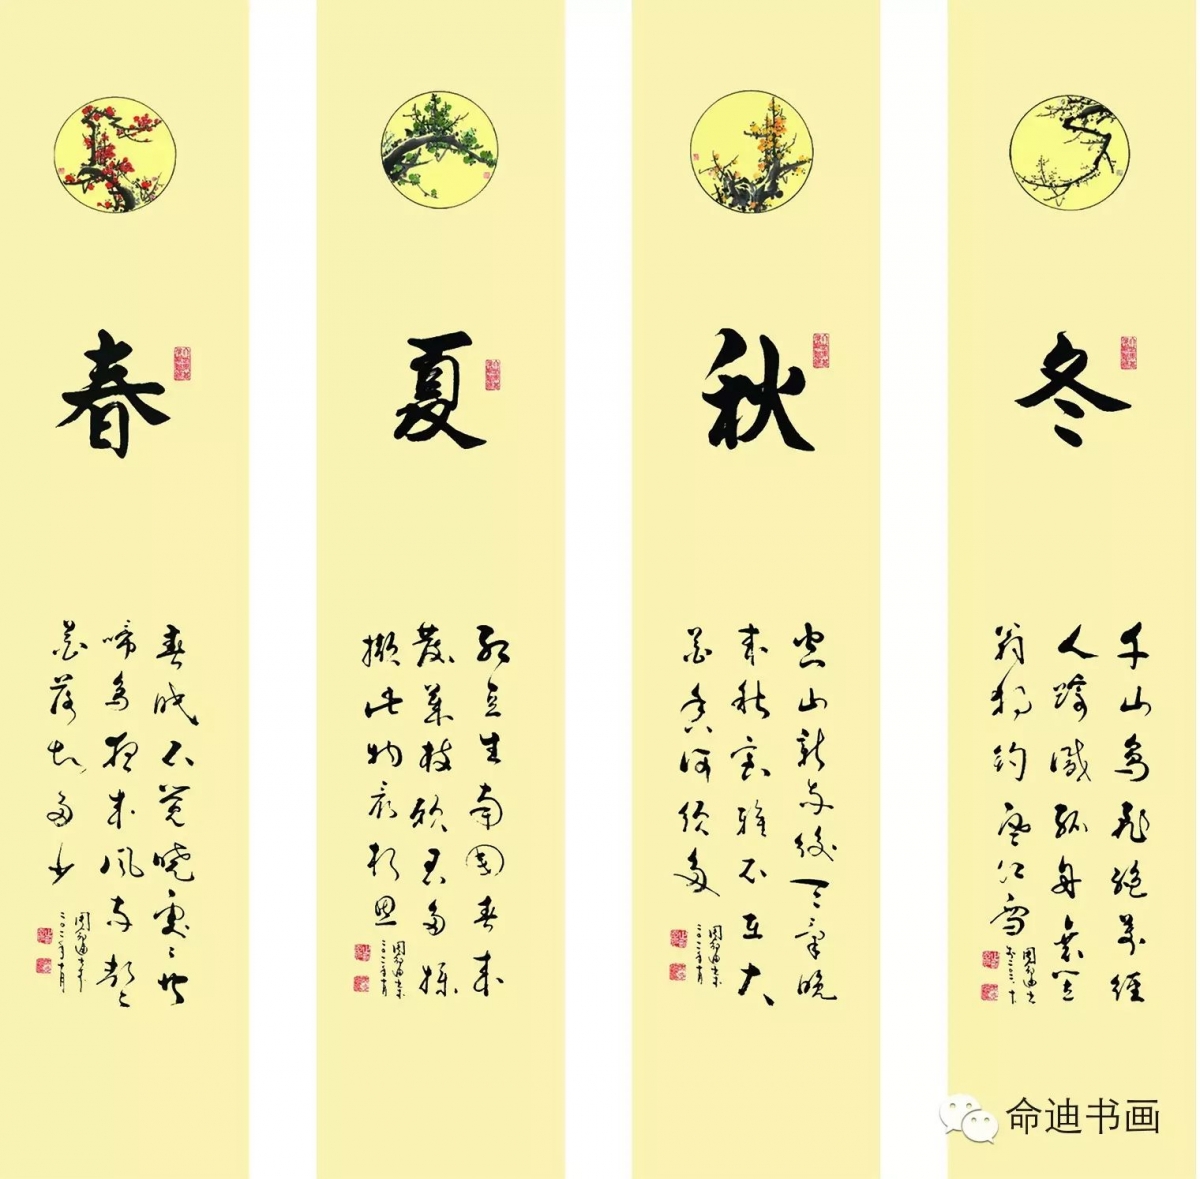 春
春眠不觉晓处々闻
啼鸟夜来风雨声
花落知多少
夏
红豆生南国春来
发几枝愿君多採
撷此物最相思
秋
空山新雨后天气晚
来秋室雅不在大
花香何须多
冬
千山鸟飞绝万径
人踪灭孤舟蓑笠
翁独钓寒江雪
命迪书画